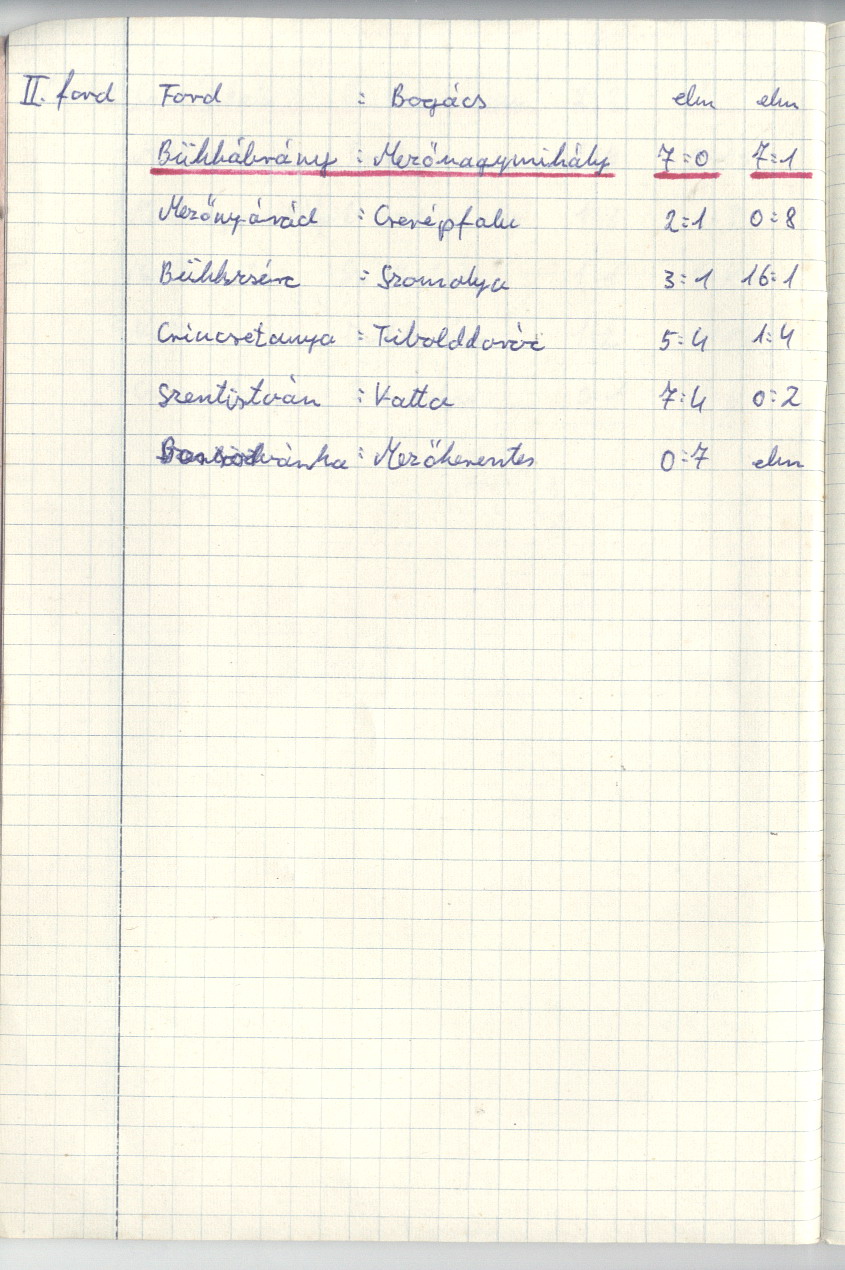 II. ford Ford : Bogács elm elm
Bükkábrány : Mezőnagymihály 7:0 7:1
Mezőnyárád : Cserépfalu 2:1 0:8
Bükkzsérc : Szomolya 3:1 16:1
Csincsetanya : Tibolddaróc 5:4 1:4
Szentistván : Vatta 7:4 0:2
Borsodivánka : Mezőkeresztes 0:7 elm